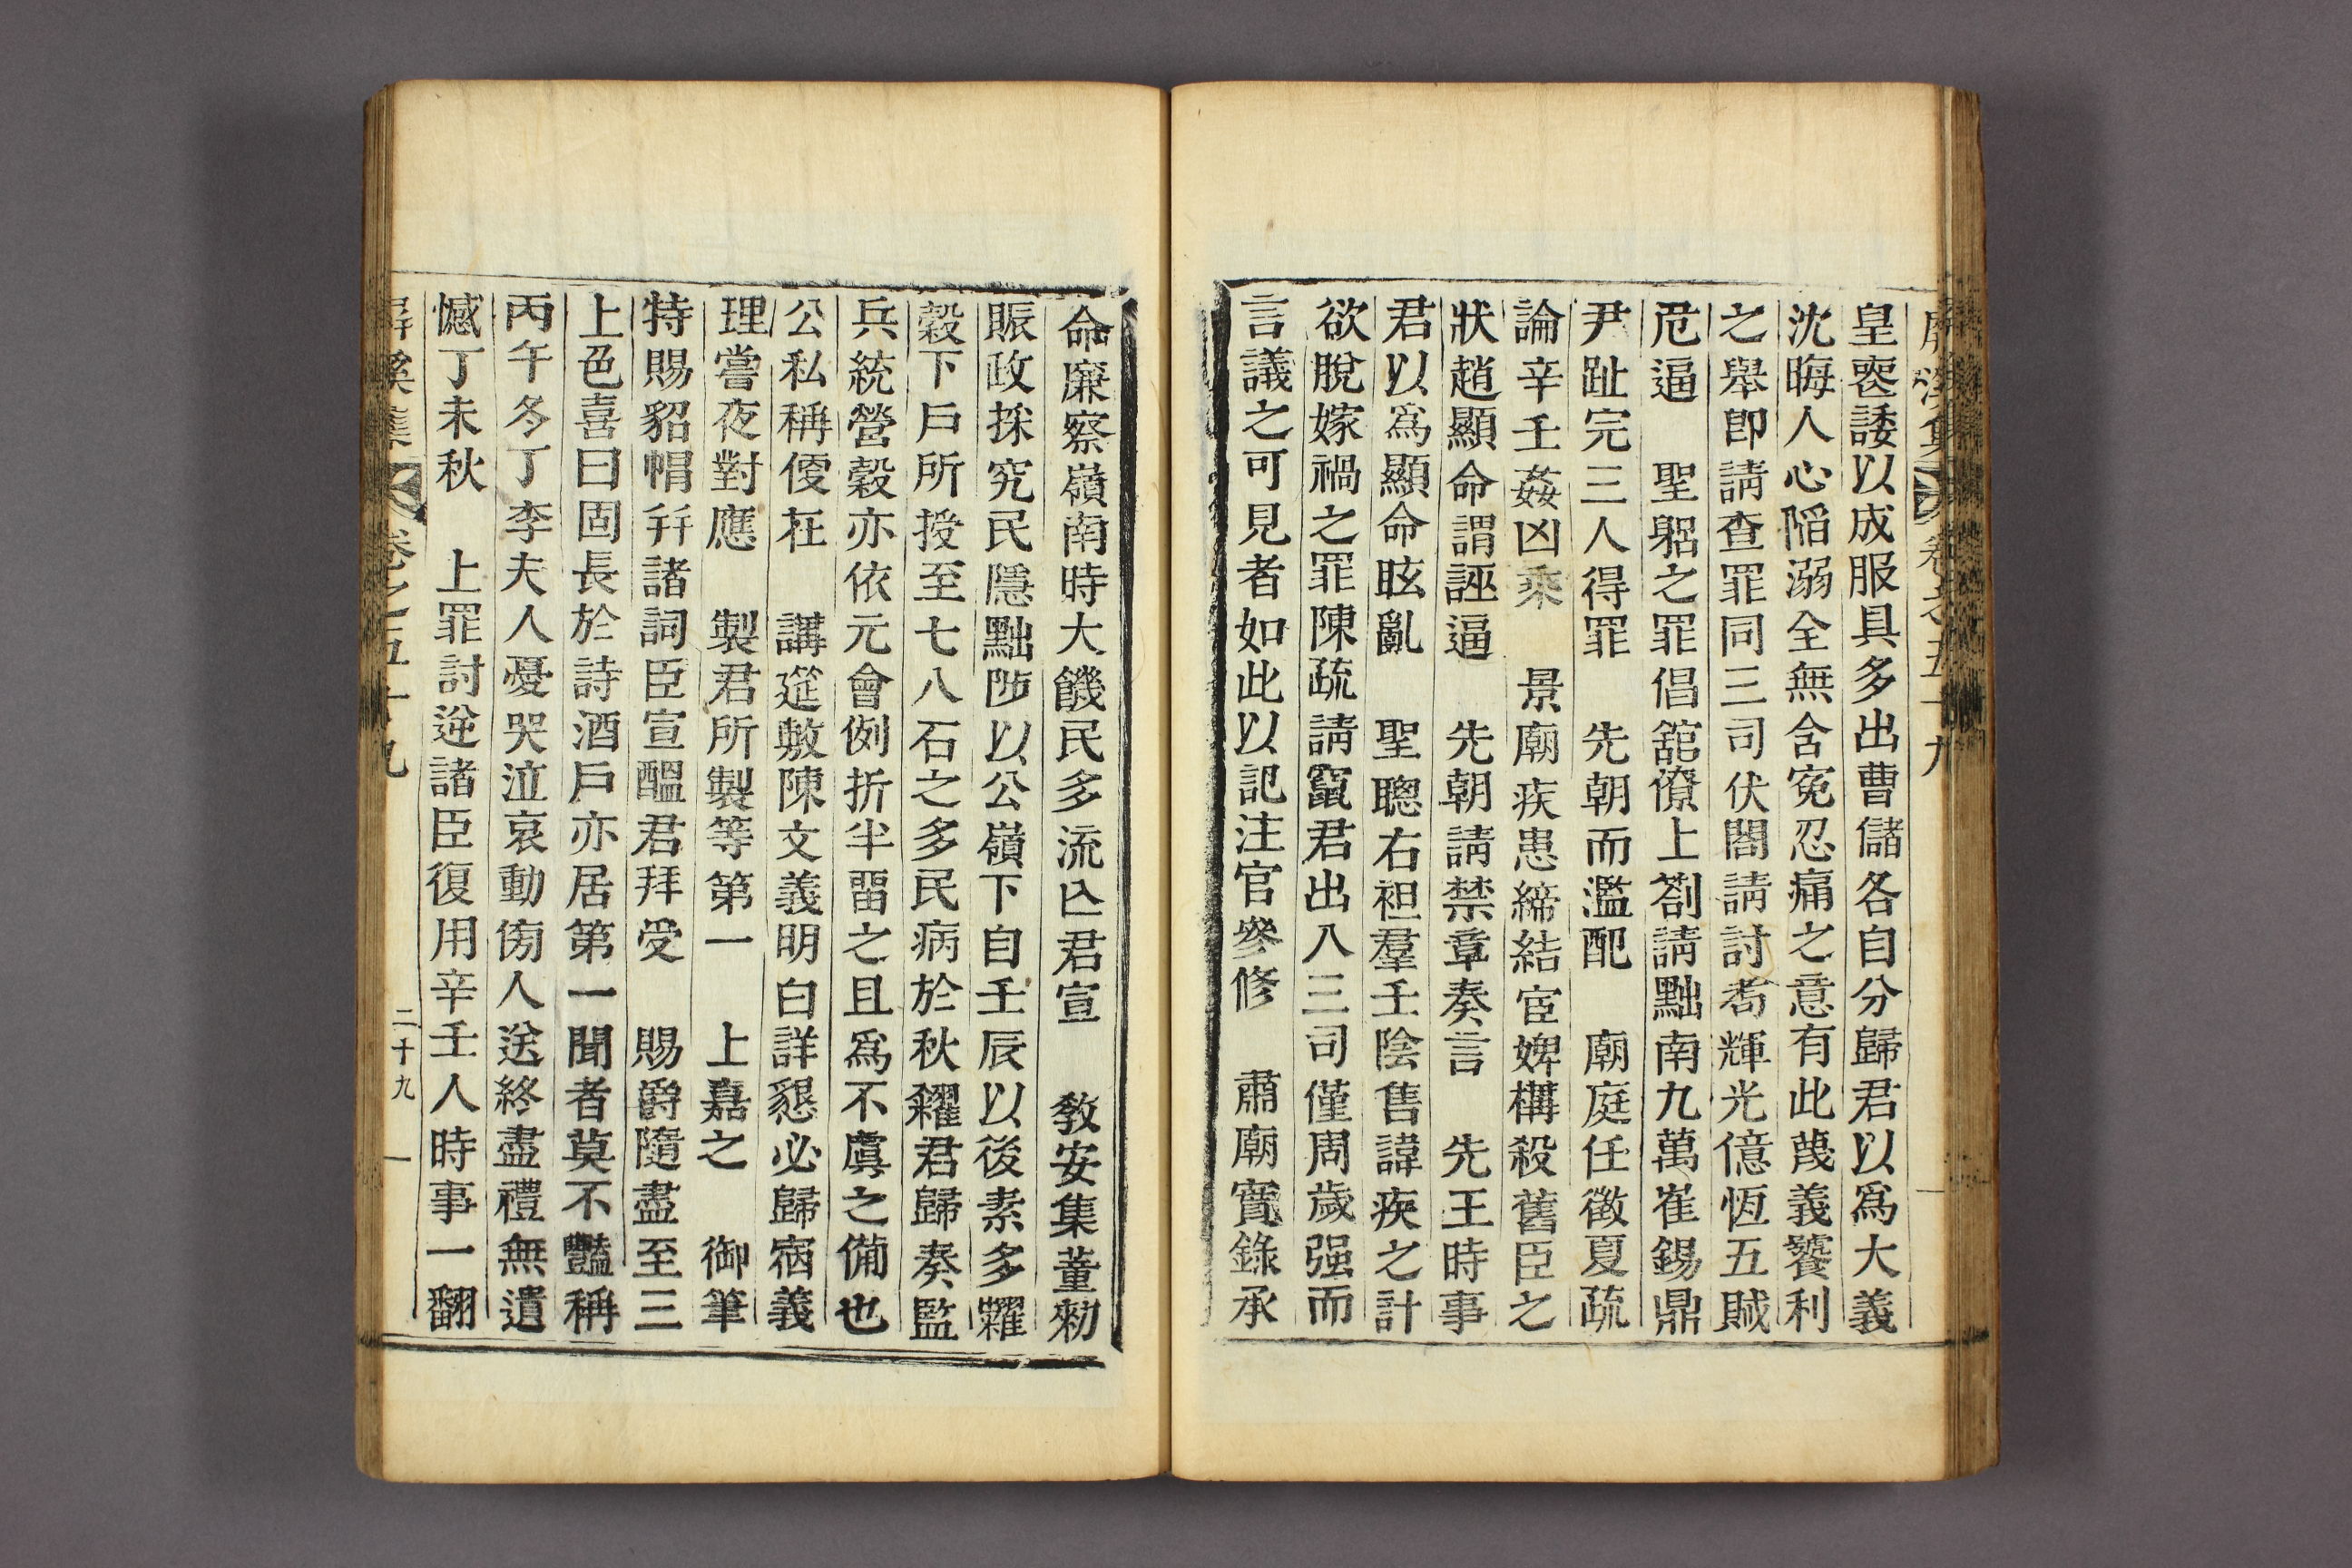 屛溪集 卷之五十九
皇喪諉以成服具多出曹儲各自分歸君以爲大義
沈晦人心陷溺全無含寃忍痛之意有此蔑義饕利
之擧卽請查罪同三司伏閤請討耉輝光億恆五賊
戹逼 聖躬之罪倡舘僚上劄請黜南九萬崔錫鼎
尹趾完三人得罪 先朝而濫配 廟庭任徵夏疏
論辛壬姦凶乘 景廟疾患締結宦婢構殺舊臣之
狀趙顯命謂誣逼 先朝請禁章奏言 先王時事
君以爲顯命眩亂 聖聰右袒羣壬陰售諱疾之計
欲脫嫁禍之罪陳疏請竄君出入三司僅周歲强而
言議之可見者如此以記注官參修 肅廟實錄承
命廉察嶺南時大饑民多流亾君宣 敎安集董勑
賑政採究民隱黜陟以公嶺下自壬辰以後素多糶
穀下戶所授至七八石之多民病於秋糴君歸奏監
兵統營穀亦依元會例折半留之且爲不虞之備也
公私稱便在 講筵敷陳文義明白詳懇必歸宿義
理嘗夜對應 製君所製等第一 上嘉之 御筆
特賜貂帽幷諸詞臣宣醞君拜受 賜爵隨盡至三
上色喜曰固長於詩酒戶亦居第一聞者莫不豔稱
丙午冬丁李夫人憂哭泣哀動傍人送終盡禮無遺
憾丁未秋 上罪討逆諸臣復用辛壬人時事一翻
屛溪集 卷之五十九 二十九